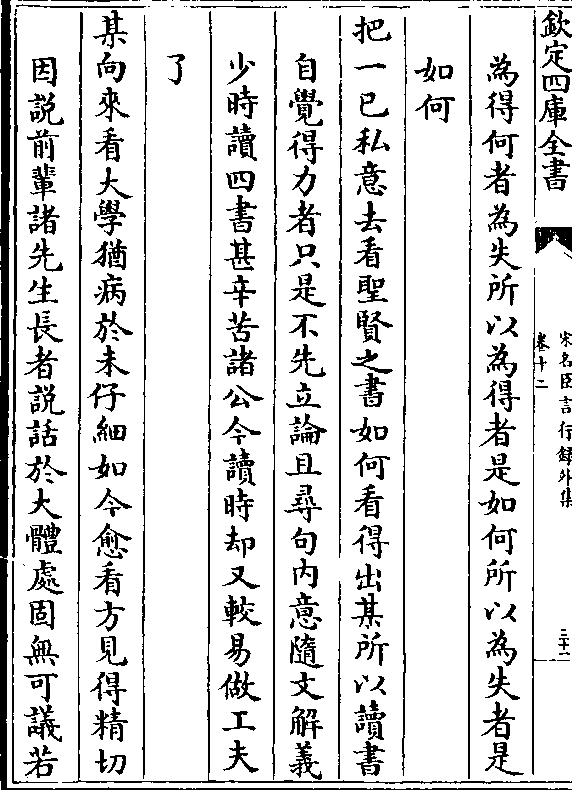 欽定四庫全書
宋名臣言行録外集
卷十二
三十二
為得何者為失所以為得者是如何所以為失者是
如何
把一已私意去看聖賢之書如何看得出某所以讀書
自覺得力者只是不先立論且尋句内意隨文解義
少時讀四書甚辛苦諸公今讀時却又較易做工夫
了
某向來看大學猶病於未仔細如今愈看方見得精切
因説前輩諸先生長者説話於大體處固無可議若